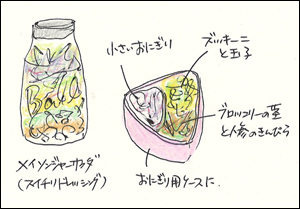 Ball
メイソンジャーサラダ
(スイチリドレッシング)
小さいおにぎり
ズッキーニ
と玉子
ブロッコリーの茎
と人参のきんぴら
おにぎり用ケースに